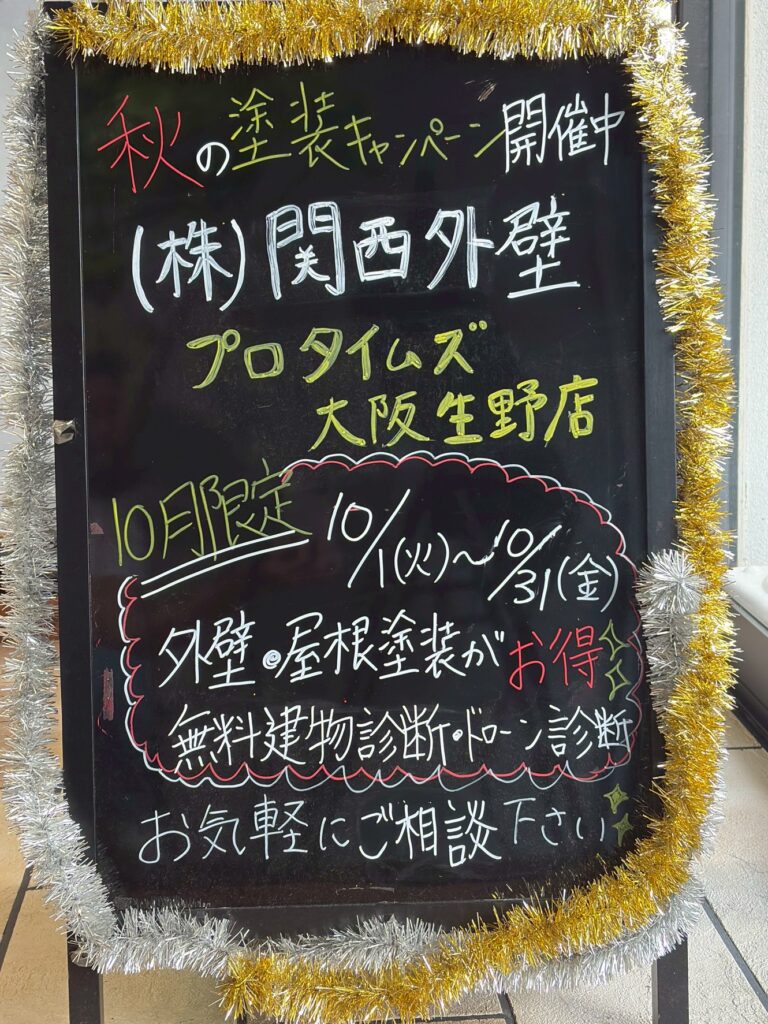 秋の塗装キャンペーン開催中
(株)関西外壁
プロタイムズ
大阪生野店
10月限定
10/1(火)~10/31(金)
外壁・屋根塗装がお得
無料建物診断・ドローン診断
お気軽にご相談下さい